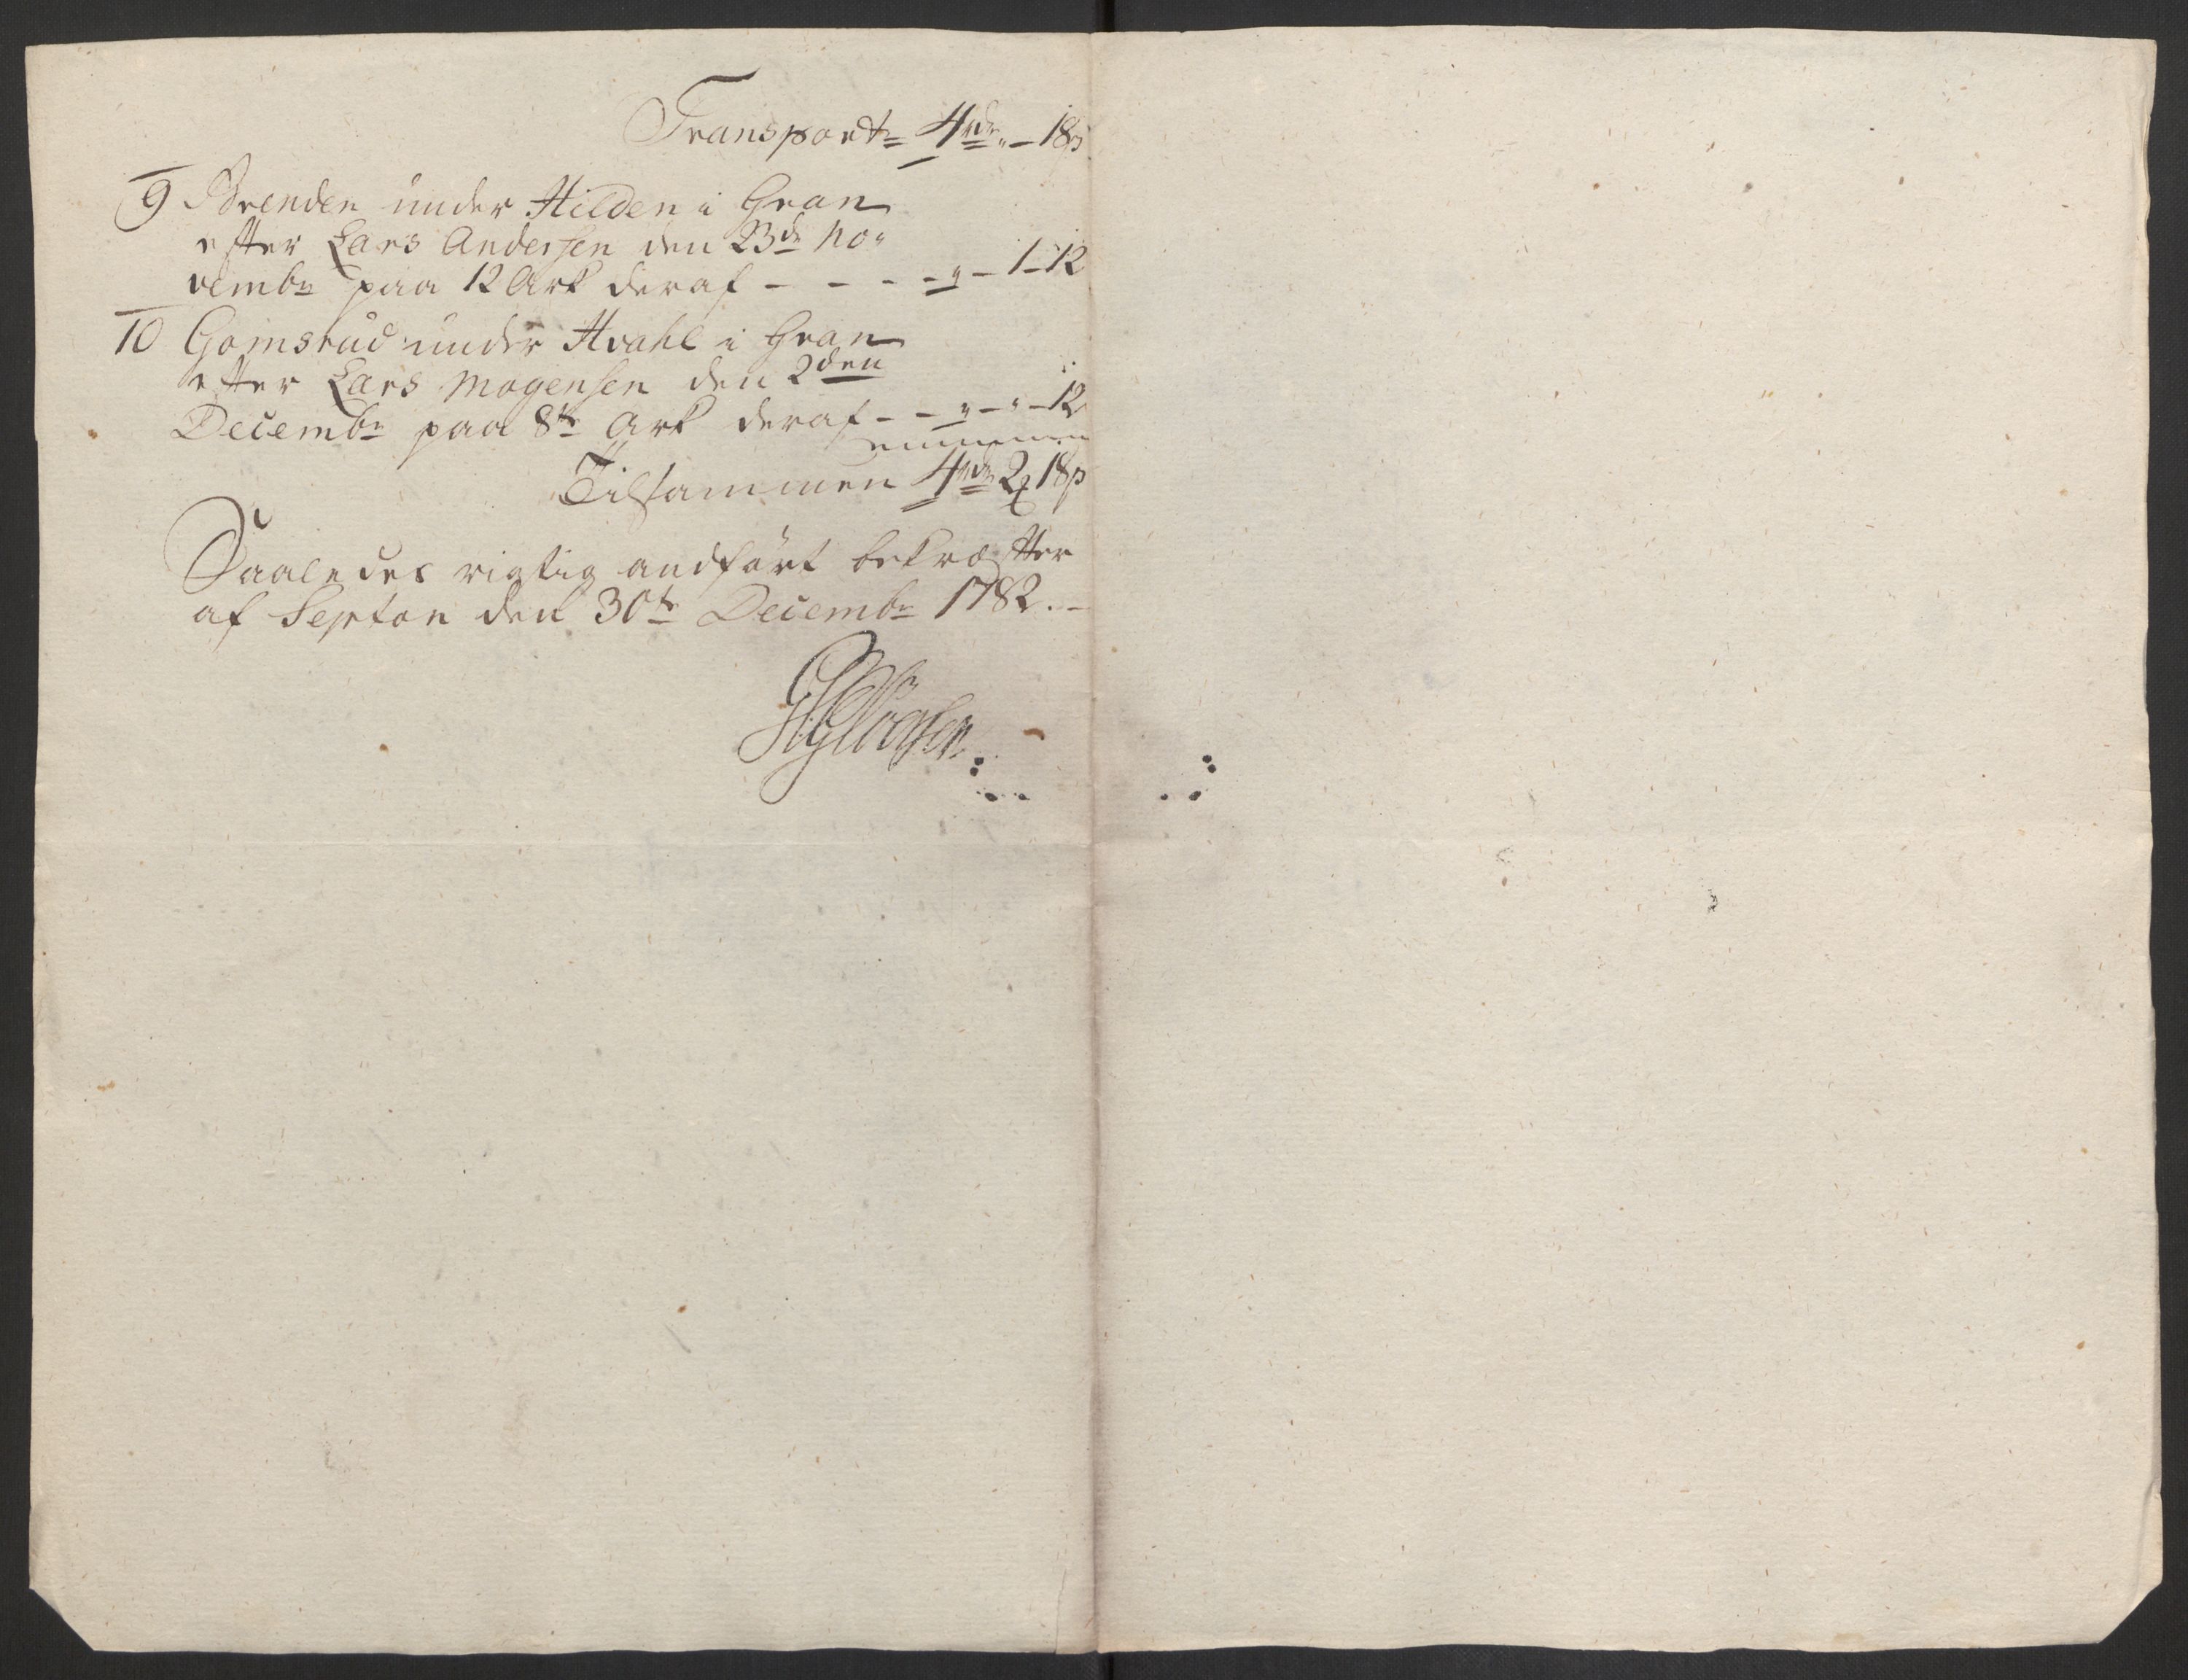 Transport 4rdr " - 18 s
9 Brenden under Hilden i Gran
efter Lars Andersen den 23de No-
vembr paa 12 Ark deraf - - - - " - 1 - 12
10 Gomsrud under Hvahl i Gran
efter Lars Mogensen den 2den
Decembr paa 8te Ark deraf - - " - " - 12
Tilsammen 4rdr 2 18 s
Saaledes rigtig andført bekræfter
af Septon den 30te Decembr 1782. -